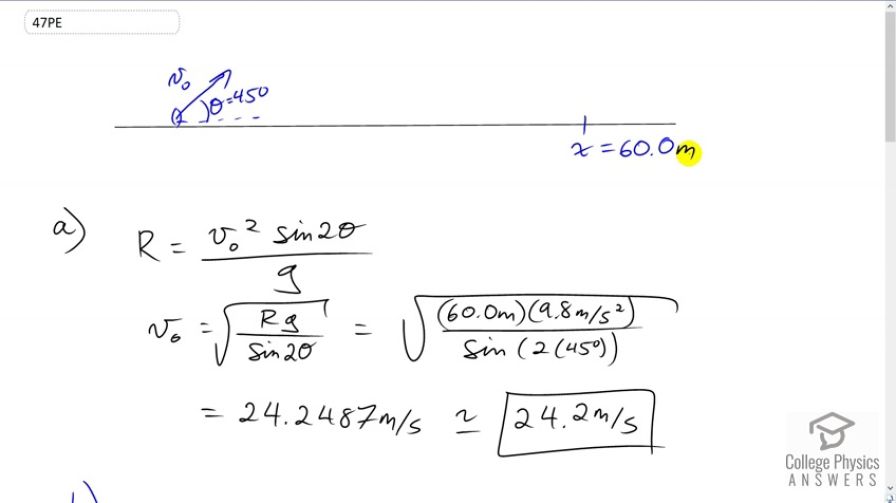 47PE
v₀
θ=45°
x = 60.0m
a)
R = v₀² sin2θ / g
v₀ = √(Rg / sin2θ) = √((60.0m)(9.8m/s²) / sin(2(45°)))
= 24.2487m/s ≃ 24.2m/s
College Physics
ANSWERS